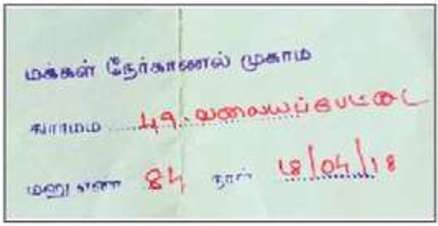 மக்கள் நேர்காணல் முகாம்
கிராமம் ...49.வலையப்பேட்டை
மனு எண் 84 நாள் 18/04/18